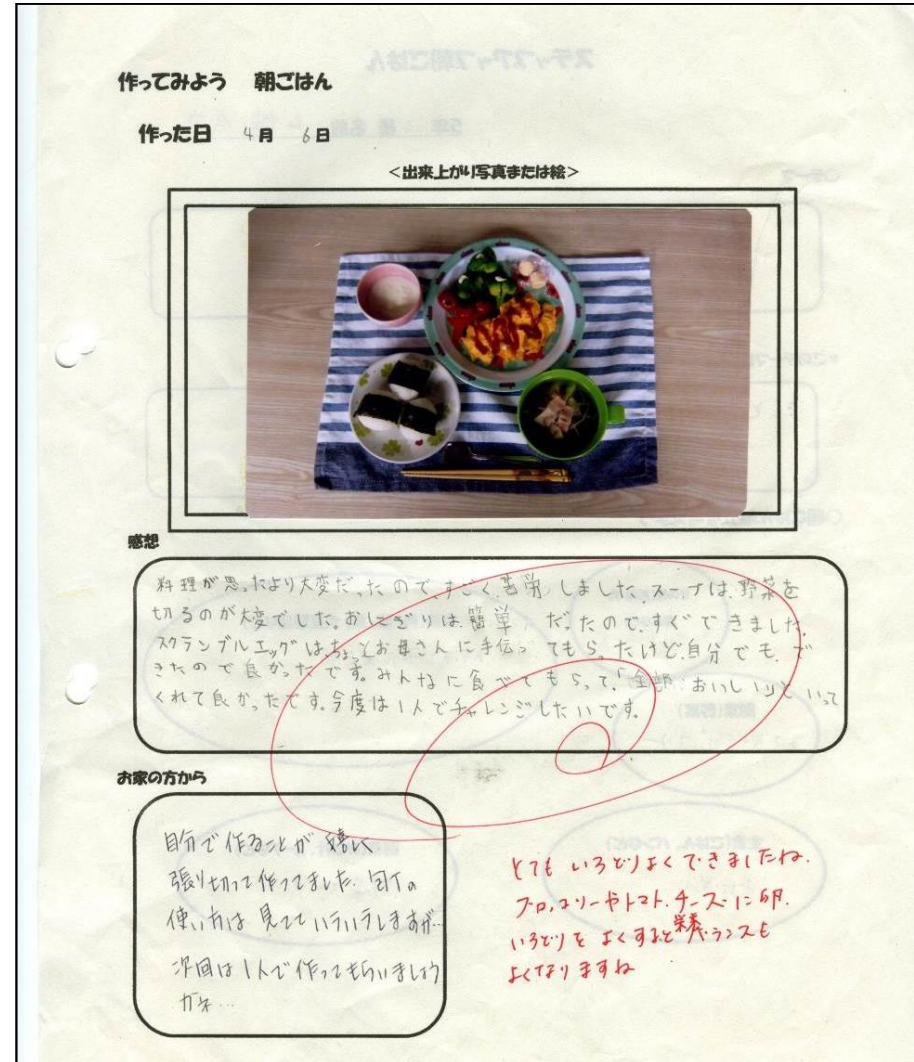 作ってみよう 朝ごはん
作った日 4月 6日
<出来上がり写真または絵>
感想
料理が思ったより大変だったので、すごく苦労しました。スープは、野菜を
切るのが大変でした。おにぎりは簡単だったので、すぐできました。
スクランブルエッグは、ちょっとお母さんに手伝ってもらったけど、自分でもで
きたので良かったです。みんなに食べてもらって、「全部おいしい」といって
くれて良かったです。今度は1人でチャレンジしたいです。
お家の方から
自分で作ることが嬉しく
張り切って作ってました。包丁の
使い方は見ててイライラしますが…
次回は1人で作ってもらいましょう
かネ…
とても いろどりよく できましたね。
ブロッコリーやトマト、チーズに卵。
いろどりを よくすると栄養バランスも
よくなりますね